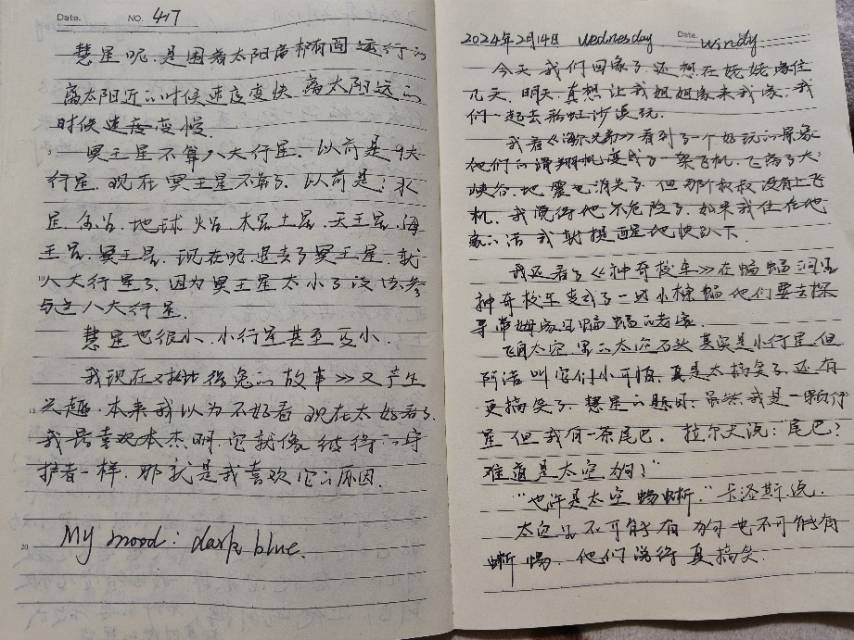 Date. NO. 417
慧星呢,是围着太阳椭圆运行的
离太阳近的时候速度变快,离太阳远的
时候速度变慢.
冥王星不算八大行星.以前是9大
行星,现在冥王星不算了.以前是:水
星.金星.地球.火星.木星土星.天王星.海
王星.冥王星.现在呢.是去了冥王星.就
八大行星了.因为冥王星太小了没法参
与这八大行星.
慧星也很小.小行星甚至更小.
我现在对《比得兔的故事》又产生
兴趣.本来我以为不好看.现在太好看了.
我最喜欢本杰明,它就像彼得的守
护者一样.那就是我喜欢它的原因.
My mood: dark blue.
2024年2月14日 Wednesday Date. windy
今天我们回家了.还想在姥姥家住
几天.明天.真想让我姐姐家来我家.我
们一起去彩虹沙漠玩.
我看《海尔兄弟》看到了一个好玩的景象
他们的滑翔机变成了一架飞机.飞离了大
峡谷.地震也消失了.但那个叔叔没有上飞
机.我觉得他不危险了.如果我住在他
家的话我就提醒他快趴下.
我还看了《神奇校车》在蝙蝠洞里
神奇校车变成了一只小棕蝠他们要去探
寻带姆家见蝙蝠的老家.
飞向太空.里的太空石头其实是小行星.但
阿诺叫它们小可怕.真是太搞笑了.还有
更搞笑了.慧星的题目.虽然我是一颗行
星但我有一条尾巴.拉尔夫说:尾巴?
难道是太空狗?"
"也许是太空蜥蜴."卡洛斯说.
太空里不可能有狗也不可能有
蜥蜴.他们说得真搞笑.